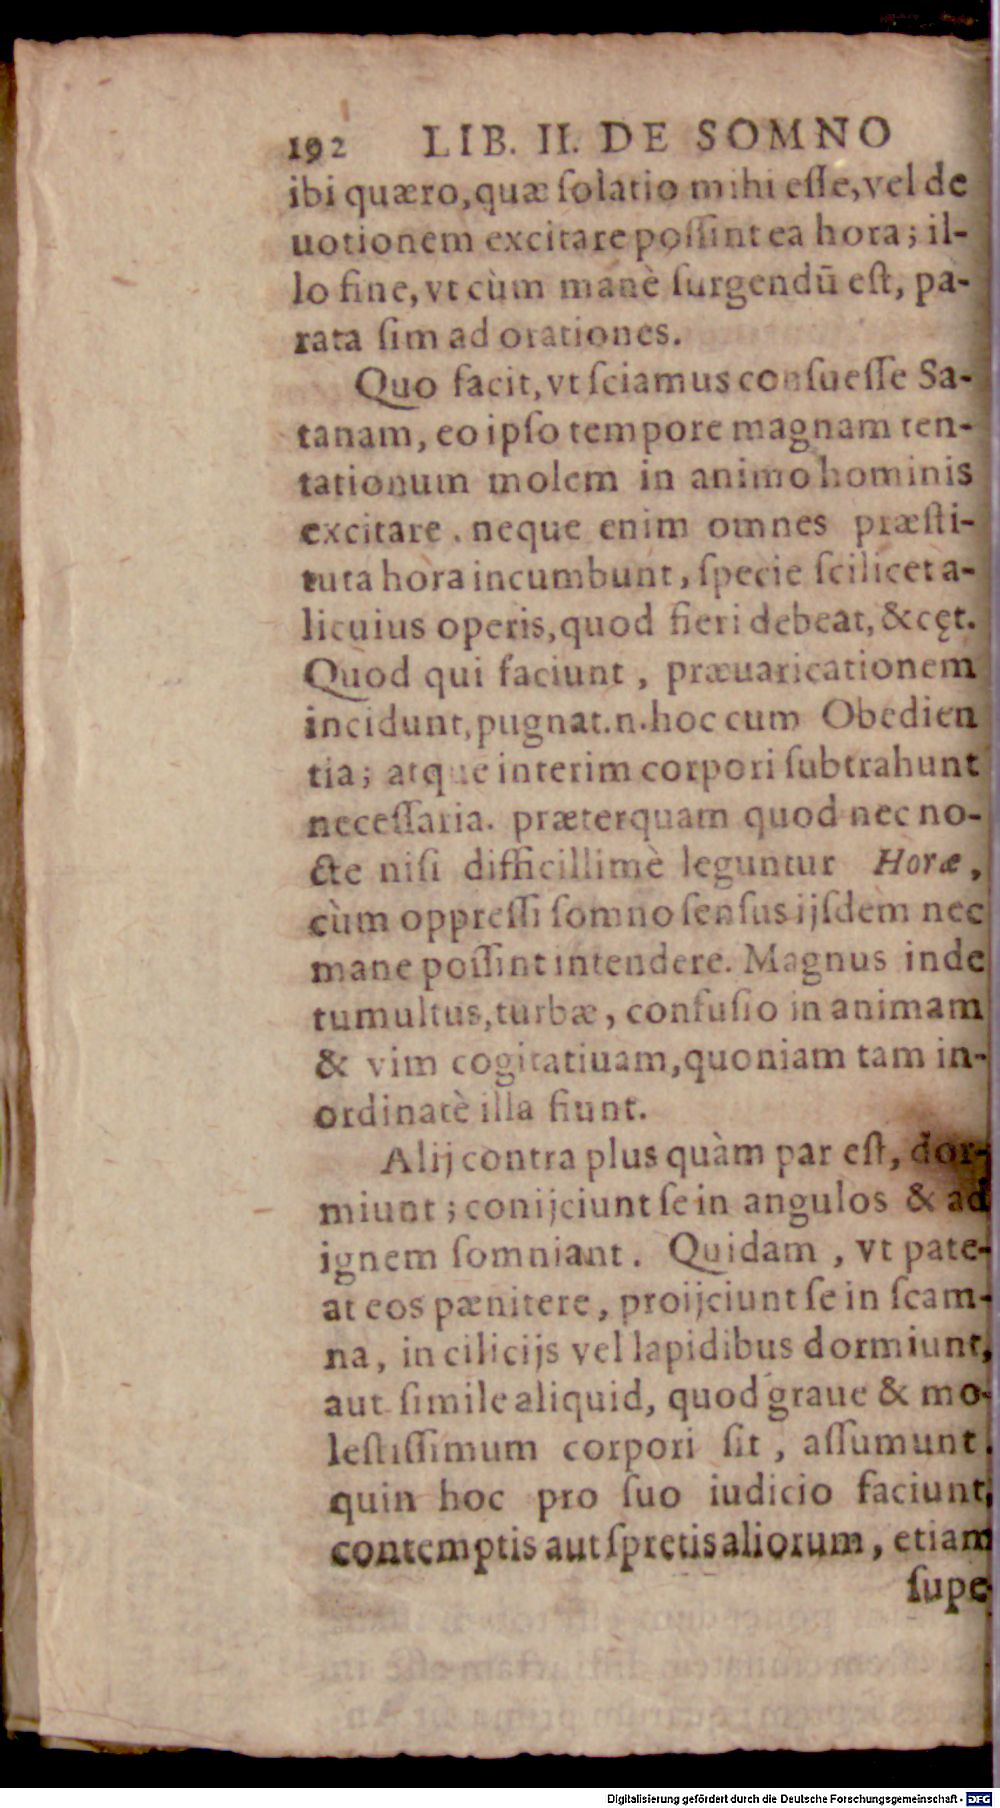 192 LIB. II. DE SOMNO
ibi quæro, quæ ſolatio mihi eſſe, vel de
uotionem excitare poſſint ea hora; il-
lo fine, vt cùm manè ſurgendū eſt, pa-
rata ſim ad orationes.
Quo facit, vt ſciamus conſueſſe Sa-
tanam, eo ipſo tempore magnam ten-
tationum molem in animo hominis
excitare. neque enim omnes præſti-
tuta hora incumbunt, ſpecie ſcilicet a-
licuius operis, quod fieri debeat, &cęt.
Quod qui faciunt, præuaricationem
incidunt, pugnat.n.hoc cum Obedien
tia; atque interim corpori ſubtrahunt
neceſſaria. præterquam quod nec no-
cte niſi difficillimè leguntur Horæ,
cùm oppreſſi ſomno ſenſus ijſdem nec
mane poſſint intendere. Magnus inde
tumultus, turbæ, confuſio in animam
& vim cogitatiuam, quoniam tam in-
ordinatè illa fiunt.
Alij contra plus quàm par eſt, dor-
miunt; conijciunt ſe in angulos & ad
ignem ſomniant. Quidam, vt pate-
at eos pænitere, proijciunt ſe in ſcam-
na, in cilicijs vel lapidibus dormiunt,
aut ſimile aliquid, quod graue & mo-
leſtiſſimum corpori ſit, aſſumunt.
quin hoc pro ſuo iudicio faciunt,
contemptis aut ſpretis aliorum, etiam
ſupe
Digitalisierung gefördert durch die Deutsche Forschungsgemeinschaft - DFG